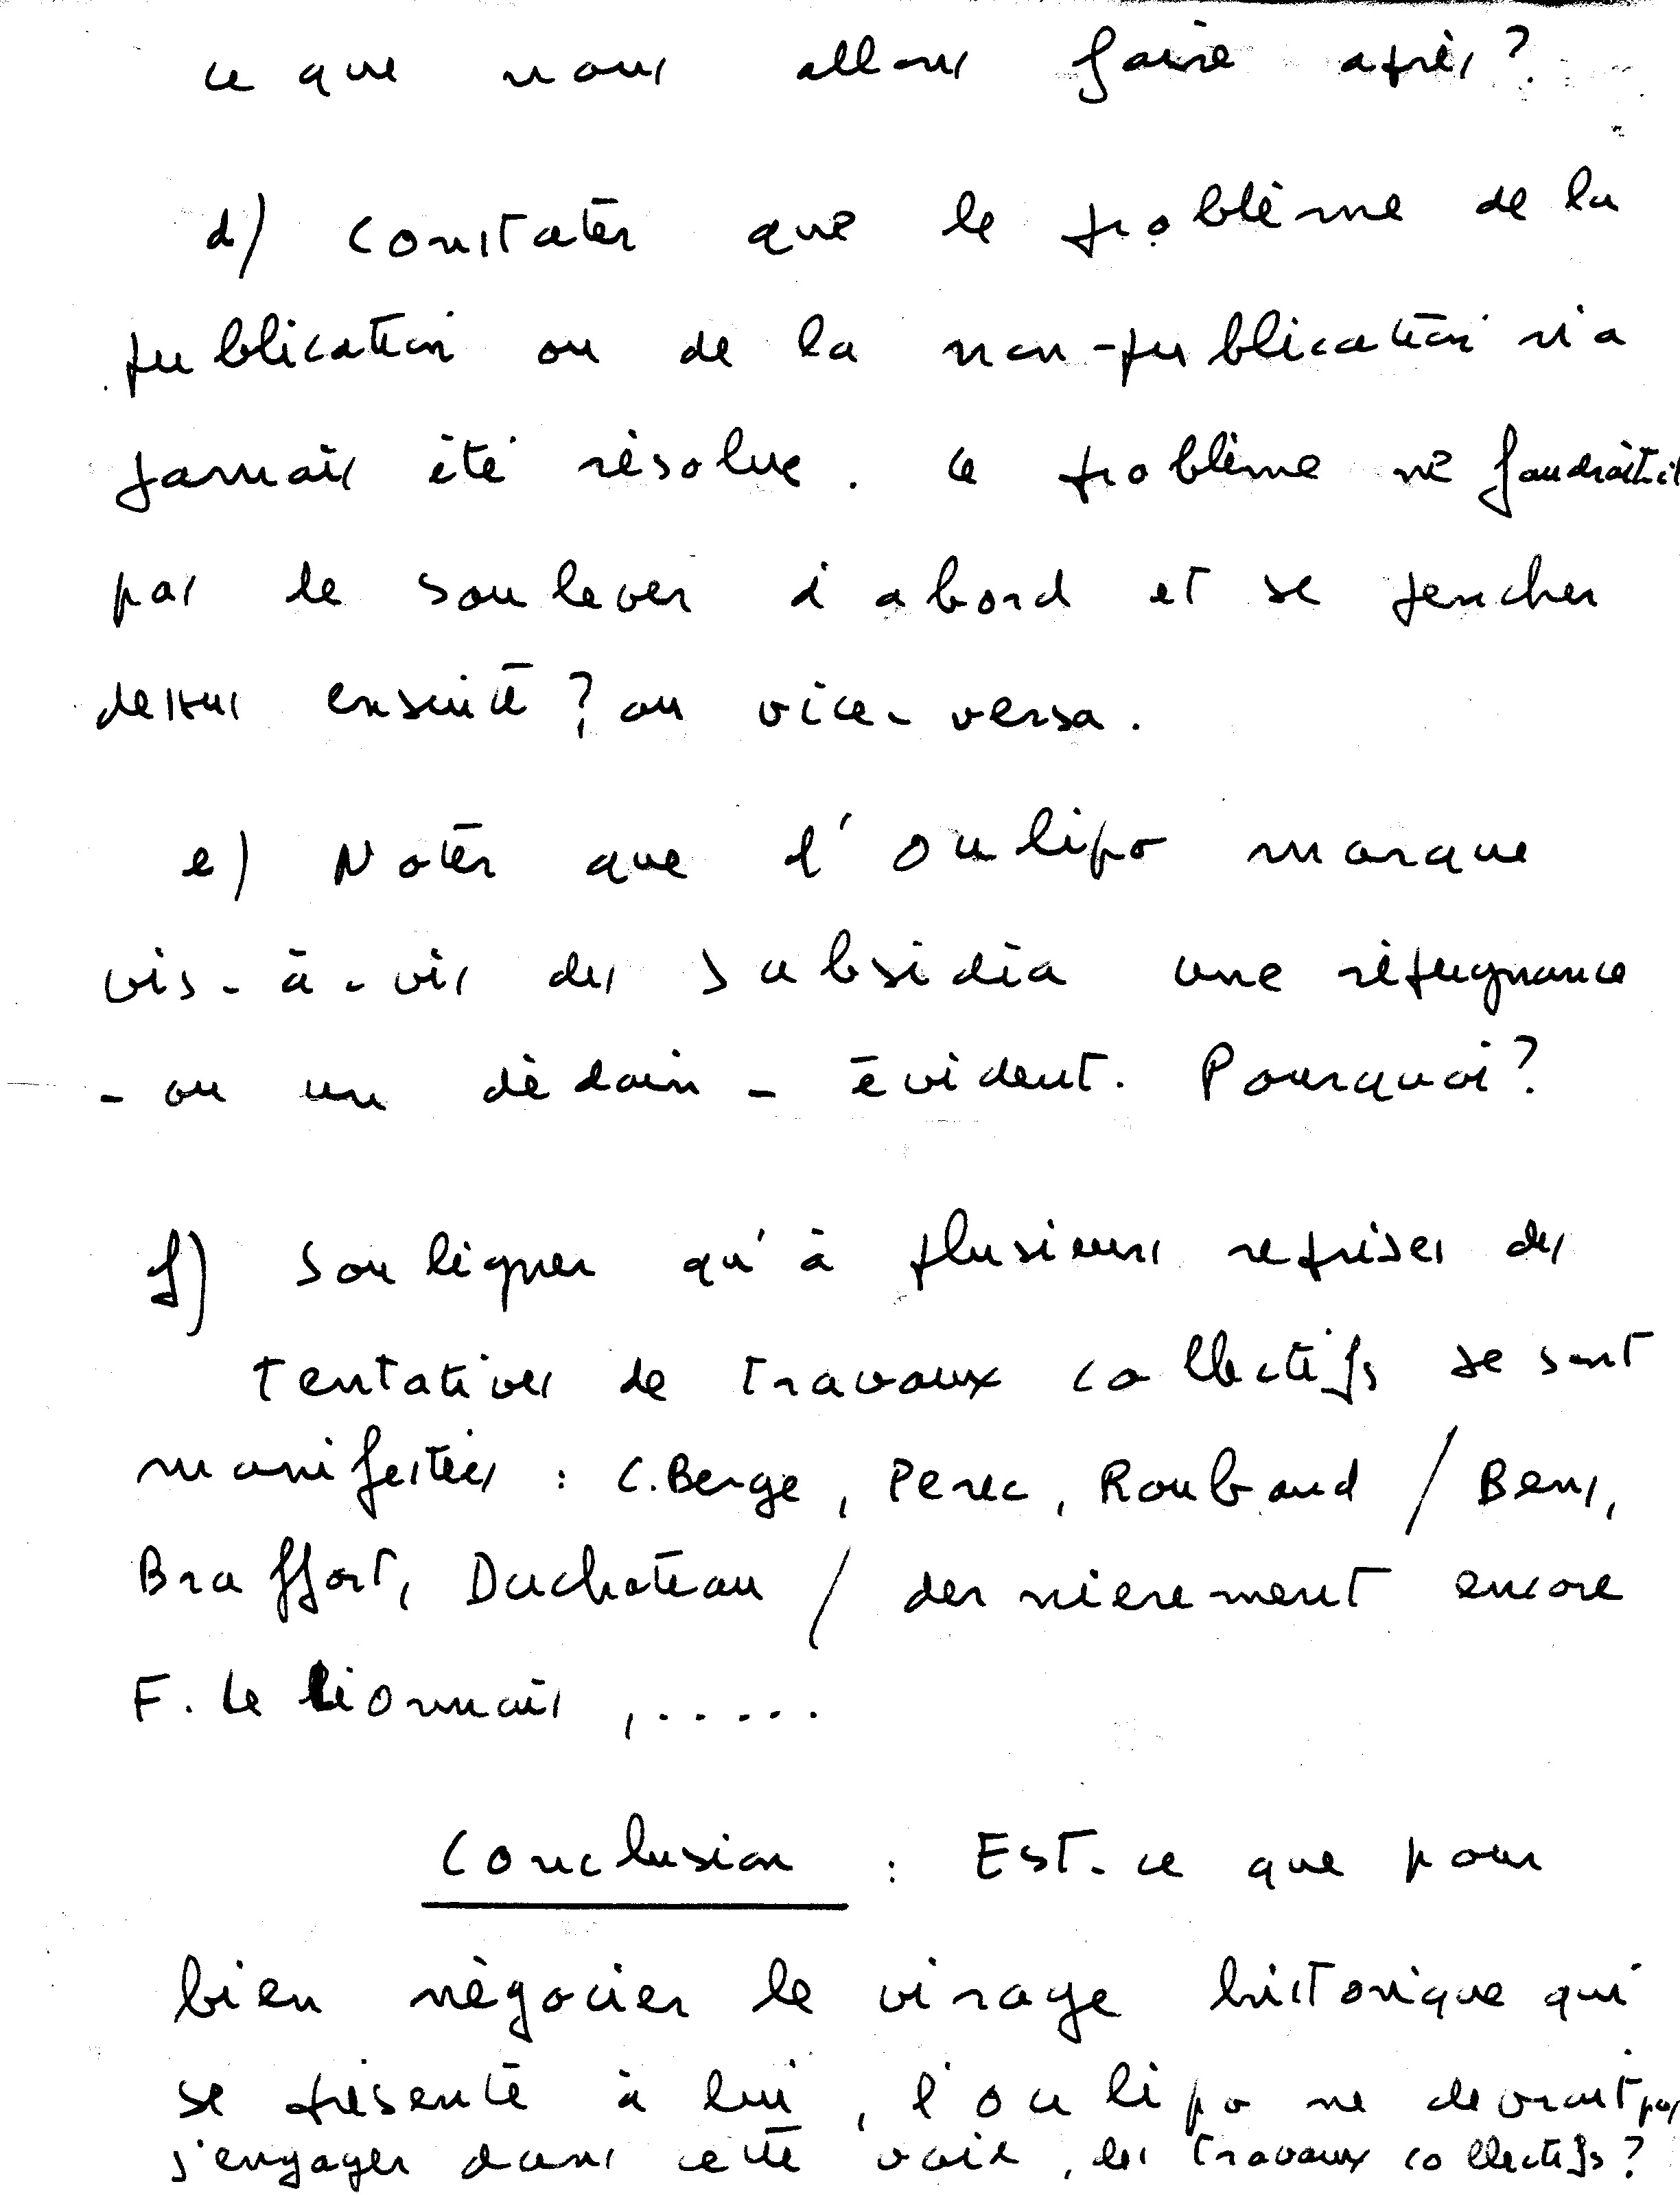 ce que nous allons faire après ?
d) Constater que le problème de la
publication ou de la non-publication n'a
jamais été résolue. Ce problème ne faudrait-il
pas le soulever d'abord et se pencher
dessus ensuite ? ou vice-versa.
e) Noter que l'Oulipo marque
vis-à-vis des subsidia une répugnance
- ou un dédain - évident. Pourquoi ?
f) Souligner qu'à plusieurs reprises des
tentatives de travaux collectifs se sont
manifestées : C. Berge, Perec, Roubaud / Bens,
Braffort, Duchateau / dernierement encore
F. Le Lionnais, .....
Conclusion : Est-ce que pour
bien négocier le virage historique qui
se présente à lui, l'oulipo ne devrait pas
s'engager dans cette voie, les travaux collectifs ?